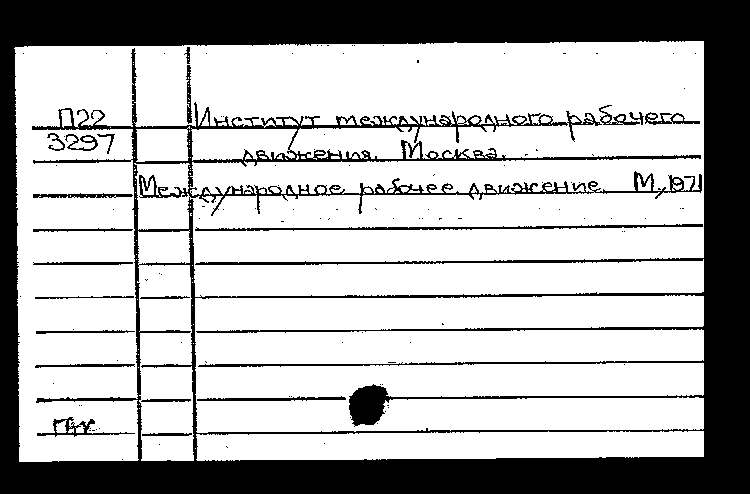 П22
3297
Институт международного рабочего
движения. Москва.
Международное рабочее движение. М., 1971